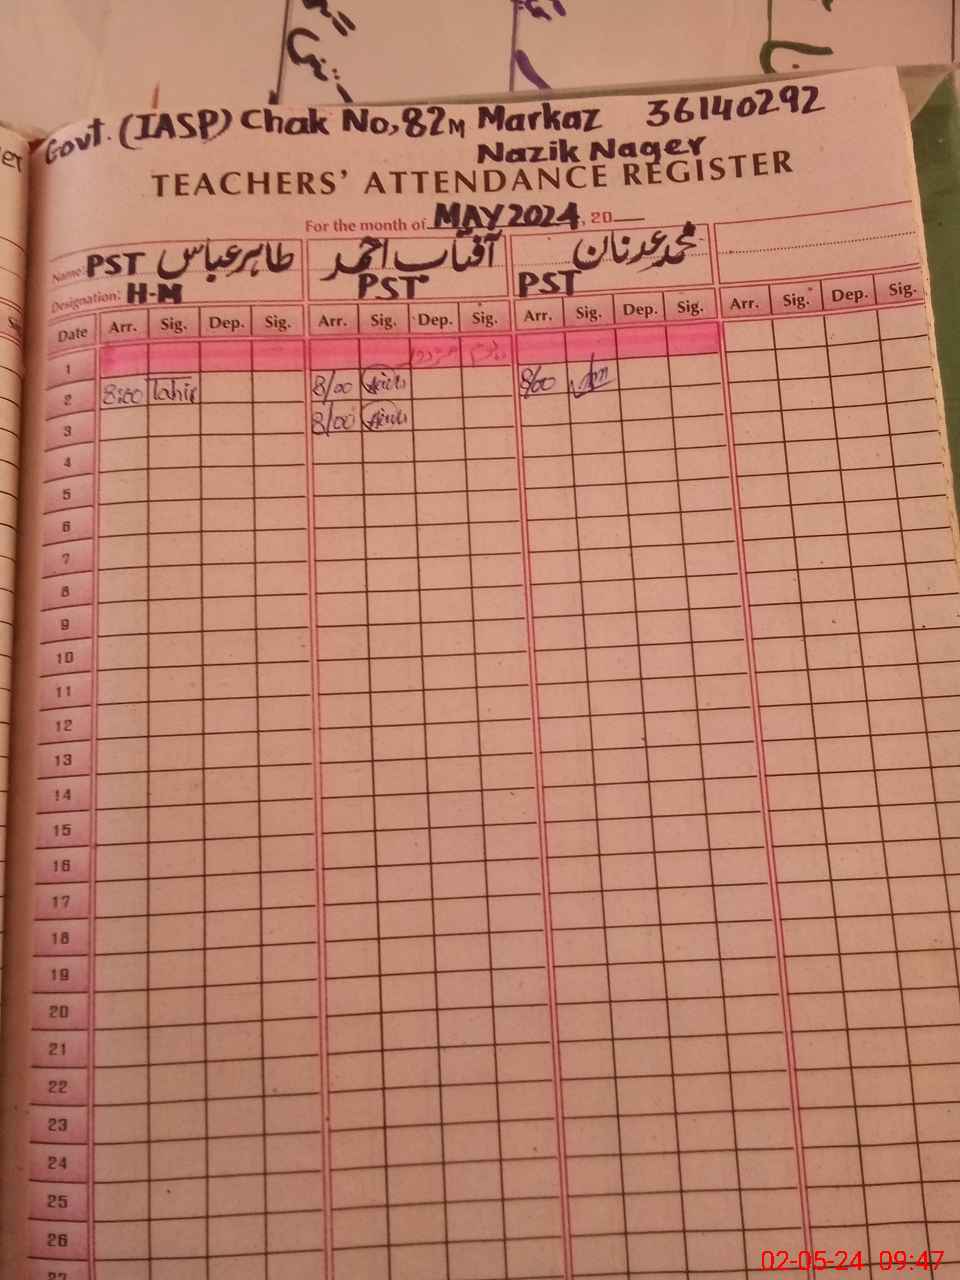 Govt. (IASP) Chak No,82M Markaz 36140292
Nazik Nager
TEACHERS' ATTENDANCE REGISTER
For the month of MAY 2024, 20
Name: PST طاہر عباس آفتاب احمد محمد عدنان
Designation: H-M PST PST
Date Arr. Sig. Dep. Sig. Arr. Sig. Dep. Sig. Arr. Sig. Dep. Sig. Arr. Sig. Dep. Sig.
1 یوم مزدور
2 8:00 Tahir 8/00 8/00
3 8/00
4
5
6
7
8
9
10
11
12
13
14
15
16
17
18
19
20
21
22
23
24
25
26
27
02-05-24 09:47